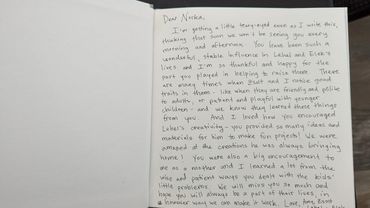 Dear Norka,
I'm getting a little teary-eyed even as I write this,
thinking that soon we won't be seeing you every
morning and afternoon. You have been such a
wonderful, stable influence in Lehel and Elek's
lives and I'm so thankful and happy for the
part you played in helping to raise them. There
are many times when Zsolt and I notice good
traits in them - like when they are friendly and polite
to adults, or patient and playful with younger
children - and we know they learned these things
from you. And I loved how you encouraged
Lehel's creativity - you provided so many ideas and
materials for him to make fun projects! We were
amazed at the creations he was always bringing
home! You were also a big encouragement to
me as a mother and I learned a lot from the
wise and patient ways you dealt with the kids'
little problems. We will miss you so much and
hope you will always be a part of their lives, in
whatever way we can make it work. Love, Amy, Zsolt
Lehel & Elek